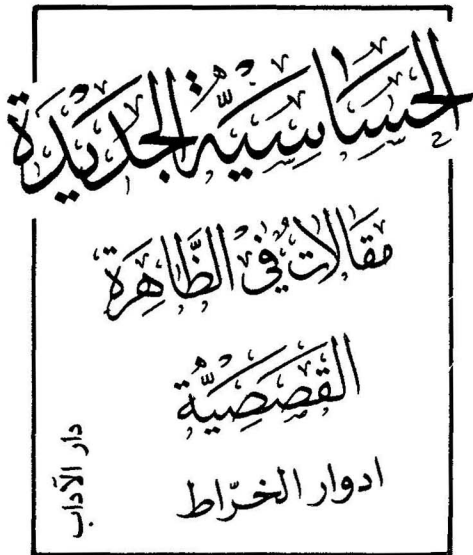 الحساسية الجديدة
مقالات في الظاهرة
القصصية
ادوار الخراط
دار الآداب